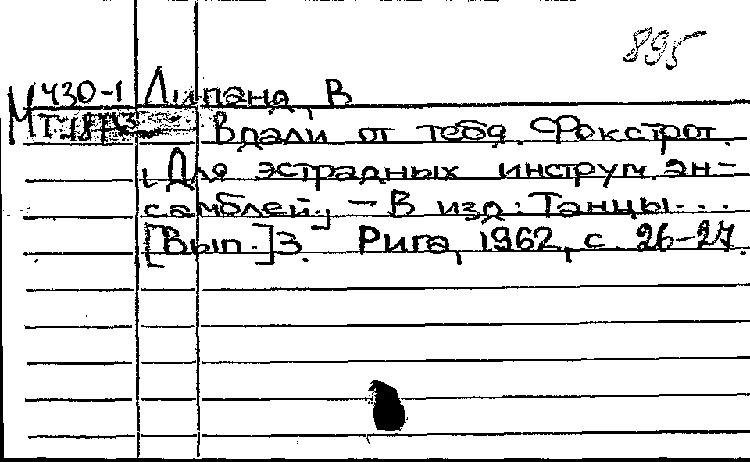 895
М Ч30-1 Липанд, В
Вдали от тебя. Фокстрот.
[Для эстрадных инструм. ан-
самблей.] – В изд: Танцы...
[Вып.] 3. Рига, 1962, с. 26-27.